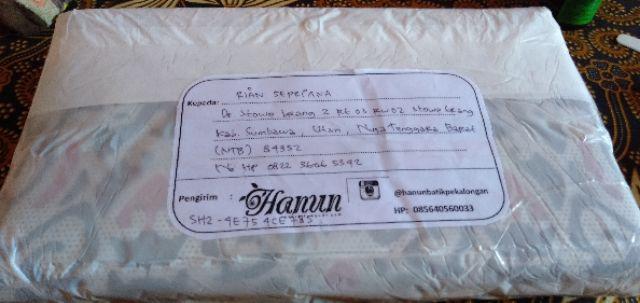 RIAN SEPRIANA
Kepada:
Ds Stowe brang 2 Rt 03 RW 02 Stowe brang
Kab. Sumbawa, Utan, Nusa Tenggara Barat
(NTB) 84352
No HP 0822 3606 5342
Pengirim : Hanun
@hanunbatikpekalongan
HP: 085640560033
SH2-4E75 4CE785